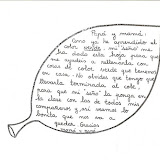 Papá y mamá:
Como ya he aprendido el
color verde, mi "seño" me
ha dado esta hoja para que
me ayudéis a rellenarla con
cosas de color verde que tenemos
en casa. No olvidéis que tengo que
llevarla terminada al cole
para que mi "seño" la ponga en
la clase con las de todos mis
compañeros y así veamos lo
bonita que nos van a
quedar. Gracias
mamá y papá